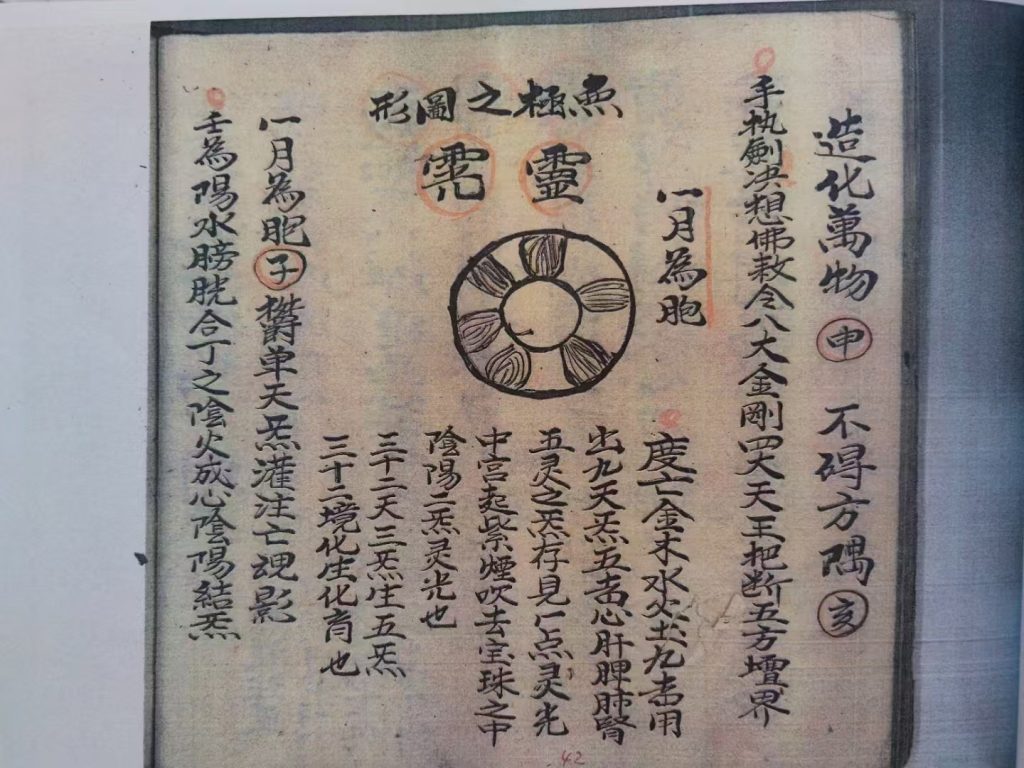 造化萬物 申 不碍方隅 亥
手执劍决想佛敕令八大金剛四大天王把断五方壇界
一月為胞
無極之圖形
靈
度亡金木水火土共九字用
出九天炁五字心肝脾肺腎
五灵之炁存見一点灵光
中宮起紫煙吹去宝珠之中
陰陽二炁灵光也
三十二天三炁生五炁
三十二境化生化育也
一月為胞 子 欝单天炁灌注亡魂影
壬為陽水膀胱合丁之陰火成心陰陽結炁
42